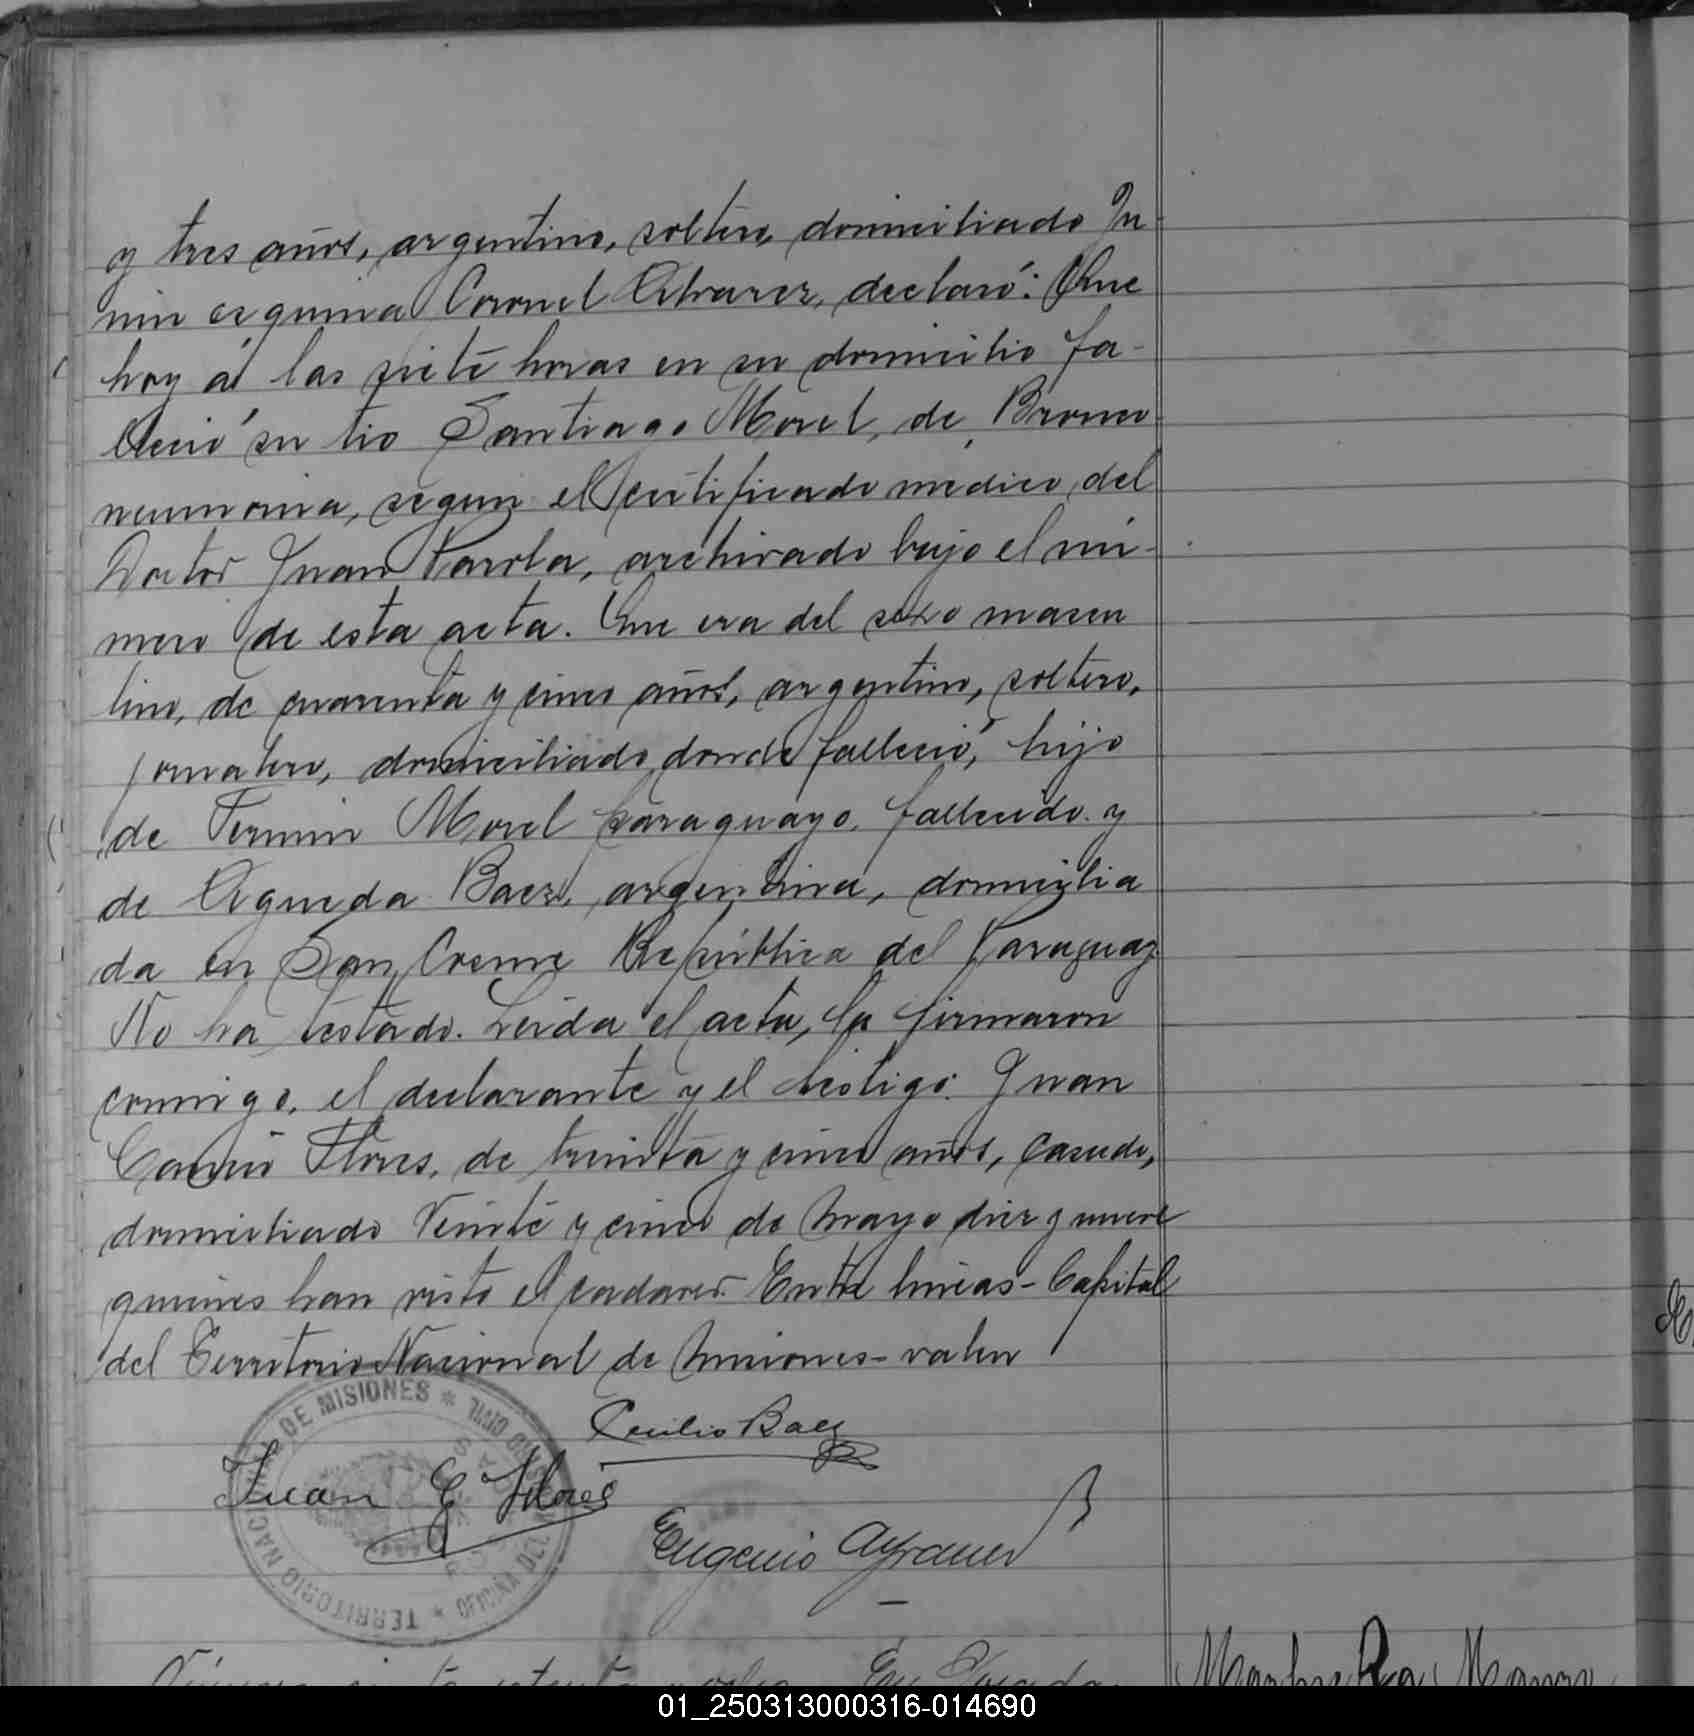 y tres años, argentino, soltero, domiciliado Ju
nin esquina Coronel Alvarez, declaró: Que
hoy á las siete horas en su domicilio fa-
lleció su tio Santiago Morel, de Bronco
neumonia, segun el certificado medico del
Doctor Juan Parola, archivado bajo el nú-
mero de esta acta. Que era del sexo mascu
lino, de cuarenta y cinco años, argentino, soltero,
jornalero, domiciliado donde falleció, hijo
de Fermin Morel paraguayo, fallecido y
de Agueda Baez, argentina, domicilia
da en San Cosme República del Paraguay
No ha testado. Leida el acta, la firmaron
conmigo, el declarante y el testigo: Juan
Flores, de treinta y cinco años, casado,
domiciliado Veinte y cinco de Mayo diez y nueve
quienes han visto el cadaver. Entre lineas-Capital
del Territorio Nacional de Misiones-valen
Cecilio Baez
Juan G Flores
Eugenio
TERRITORIO NACIONAL DE MISIONES * REGISTRO CIVIL
OFICINA DEL
POSADAS
01_250313000316-014690